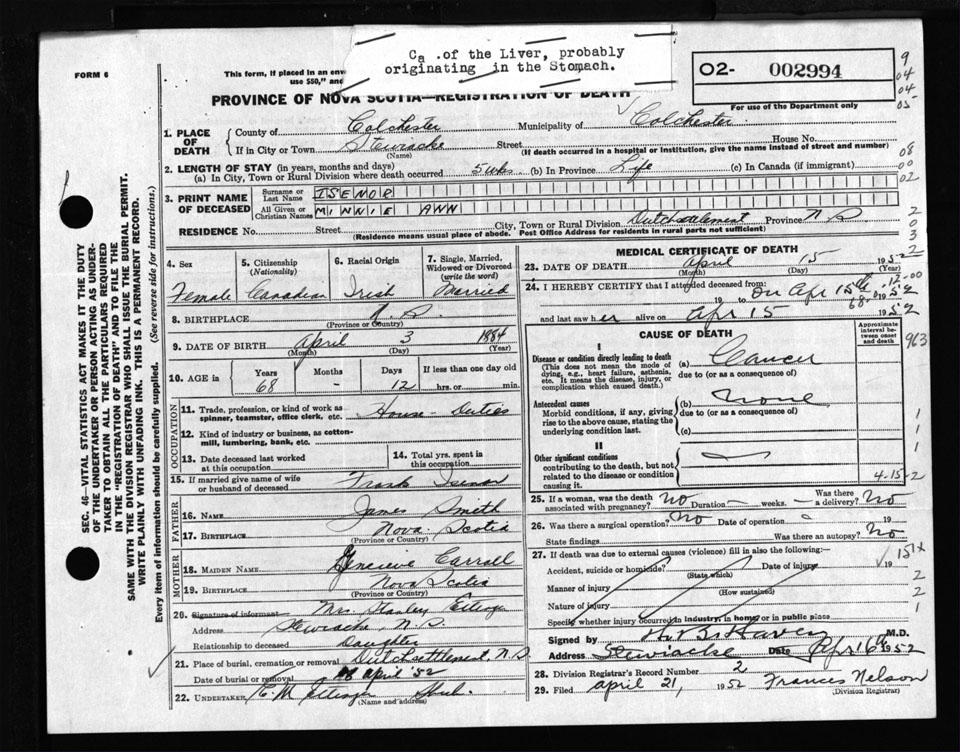 Ca .of the Liver, probably
originating in the Stomach.
FORM 6
This form, if placed in an env
use $50," and
O2- 002994
For use of the Department only
PROVINCE OF NOVA SCOTIA—REGISTRATION OF DEATH
1. PLACE OF DEATH
County of Colchester Municipality of Colchester
If in City or Town Stewiacke Street House No.
(Name) (If death occurred in a hospital or institution, give the name instead of street and number)
2. LENGTH OF STAY (in years, months and days)
(a) In City, Town or Rural Division where death occurred 5 wks (b) In Province Life (c) In Canada (if immigrant)
3. PRINT NAME OF DECEASED
Surname or Last Name ISENOR
All Given or Christian Names MINNIE ANN
RESIDENCE No. Street City, Town or Rural Division Dutch Settlement Province N.S
(Residence means usual place of abode. Post Office Address for residents in rural parts not sufficient)
4. Sex
5. Citizenship (Nationality)
6. Racial Origin
7. Single, Married, Widowed or Divorced (write the word)
Female Canadian Irish Married
8. BIRTHPLACE N.S.
(Province or Country)
9. DATE OF BIRTH April 3 1884
(Month) (Day) (Year)
10. AGE in Years Months Days If less than one day old
68 - 12 hrs. or min.
OCCUPATION
11. Trade, profession, or kind of work as spinner, teamster, office clerk, etc. House-Duties
12. Kind of industry or business, as cotton-mill, lumbering, bank, etc.
13. Date deceased last worked at this occupation
14. Total yrs. spent in this occupation
15. If married give name of wife or husband of deceased Frank Isenor
FATHER
16. NAME James Smith
17. BIRTHPLACE Nova Scotia
(Province or Country)
MOTHER
18. MAIDEN NAME Genevieve Carroll
19. BIRTHPLACE Nova Scotia
(Province or Country)
20. Signature of informant Mrs Stanley
Address Stewiacke, N.S
Relationship to deceased Daughter
21. Place of burial, cremation or removal Dutch settlement, N.S
Date of burial or removal 18 April '52
22. UNDERTAKER
(Name and address)
MEDICAL CERTIFICATE OF DEATH
23. DATE OF DEATH April 15 1952
(Month) (Day) (Year)
24. I HEREBY CERTIFY that I attended deceased from
19 to on Apr 15th 1952
and last saw her alive on Apr 15 1952
CAUSE OF DEATH
Approximate interval between onset and death
I
Disease or condition directly leading to death
(This does not mean the mode of dying, e.g., heart failure, asthenia, etc. It means the disease, injury, or complication which caused death.)
(a) Cancer
due to (or as a consequence of)
Antecedent causes
Morbid conditions, if any, giving rise to the above cause, stating the underlying condition last.
(b) None
due to (or as a consequence of)
(c)
II
Other significant conditions
contributing to the death, but not related to the disease or condition causing it.
4-15-2
25. If a woman, was the death associated with pregnancy? No Duration — weeks. Was there a delivery? No
26. Was there a surgical operation? No Date of operation 19
State findings Was there an autopsy? No
27. If death was due to external causes (violence) fill in also the following:—
Accident, suicide or homicide? Date of injury 19
(State which)
Manner of injury
(How sustained)
Nature of injury
Specify whether injury occurred in industry, in home, or in public place
Signed by M.D.
Address Stewiacke Date Apr 16th 1952
28. Division Registrar's Record Number 2
29. Filed april 21, 1952 Frances Nelson
(Division Registrar)
SEC. 46—VITAL STATISTICS ACT MAKES IT THE DUTY
OF THE UNDERTAKER OR PERSON ACTING AS UNDER-
TAKER TO OBTAIN ALL THE PARTICULARS REQUIRED
IN THE "REGISTRATION OF DEATH" AND TO FILE THE
SAME WITH THE DIVISION REGISTRAR WHO SHALL ISSUE THE BURIAL PERMIT.
WRITE PLAINLY WITH UNFADING INK. THIS IS A PERMANENT RECORD.
Every item of information should be carefully supplied. (See reverse side for instructions.)
9
04
04
05
08
00
02
2
0
3
2
963
1
1
1
151x
2
2
1